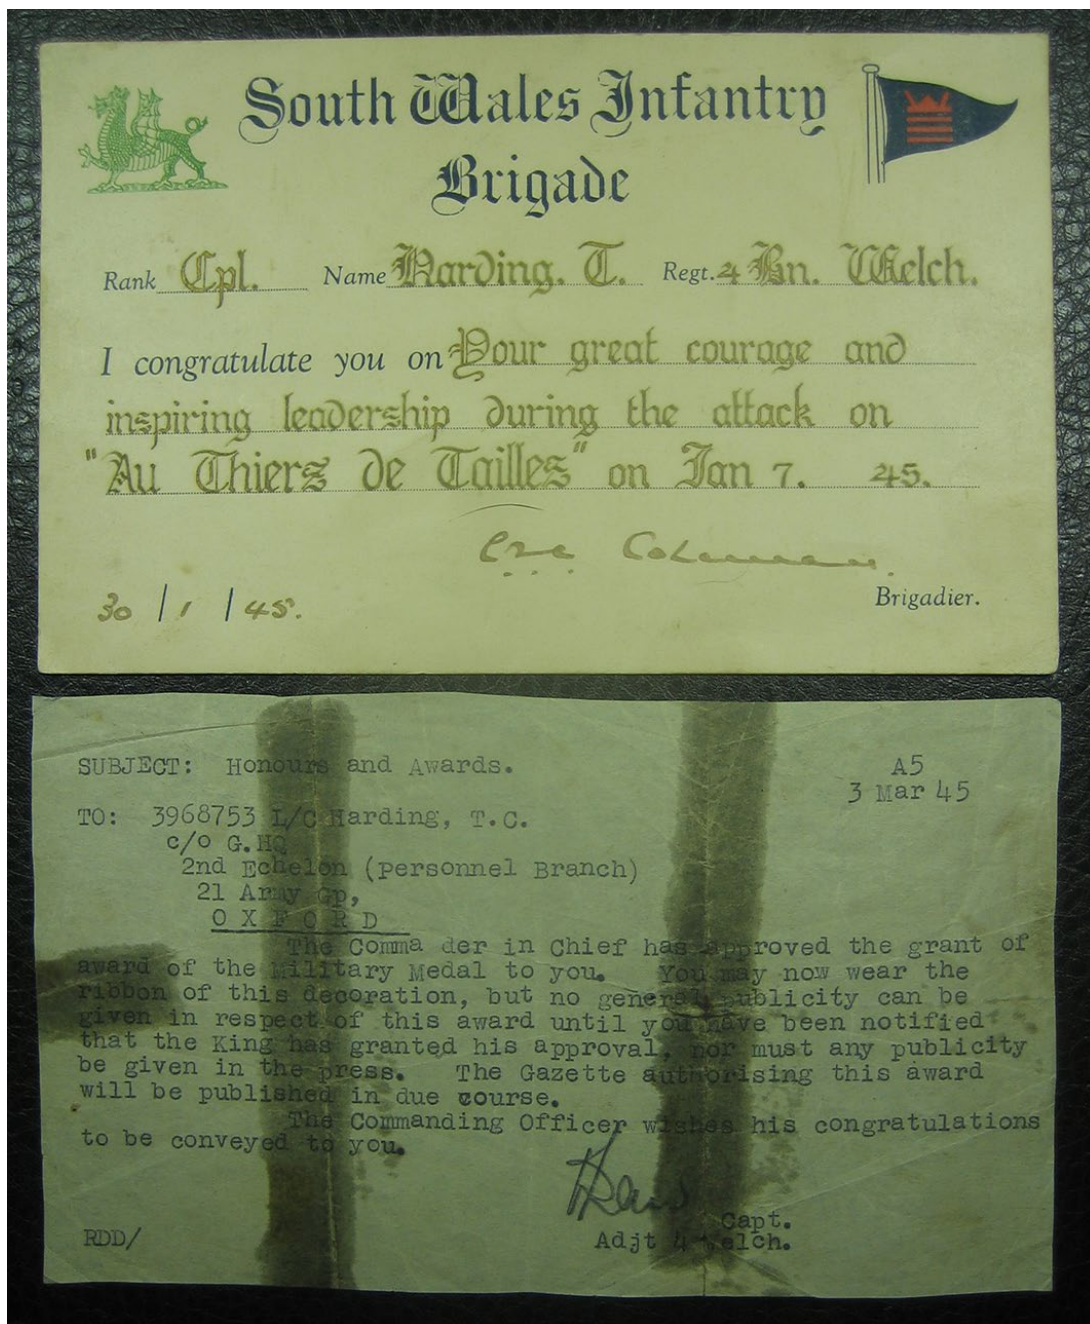 South Wales Infantry
Brigade
Rank Cpl. Name Harding. T. Regt. 4 Bn. Welch.
I congratulate you on Your great courage and
inspiring leadership during the attack on
"Au Thiers de Tailles" on Jan 7. 45.
Coleman
30/1/45.
Brigadier.
SUBJECT: Honours and Awards.
A5
3 Mar 45
TO: 3968753 L/C Harding, T.C.
c/o G.HQ
2nd Echelon (personnel Branch)
21 Army Gp,
OXFORD
The Comma der in Chief has approved the grant of
award of the Military Medal to you. You may now wear the
ribbon of this decoration, but no general publicity can be
given in respect of this award until you have been notified
that the King has granted his approval, nor must any publicity
be given in the press. The Gazette authorising this award
will be published in due course.
The Commanding Officer wishes his congratulations
to be conveyed to you.
Capt.
RDD/
Adjt 4 Welch.